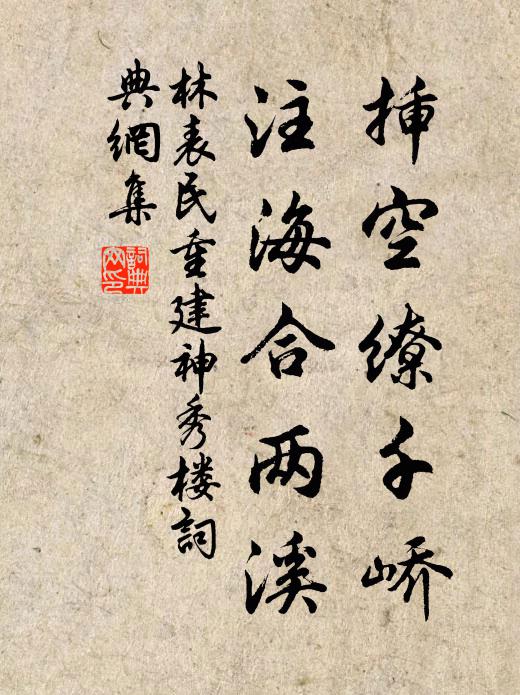 插空缭千峤
注海合两溪
林表民重建神秀楼词
典網集
詞典
网印